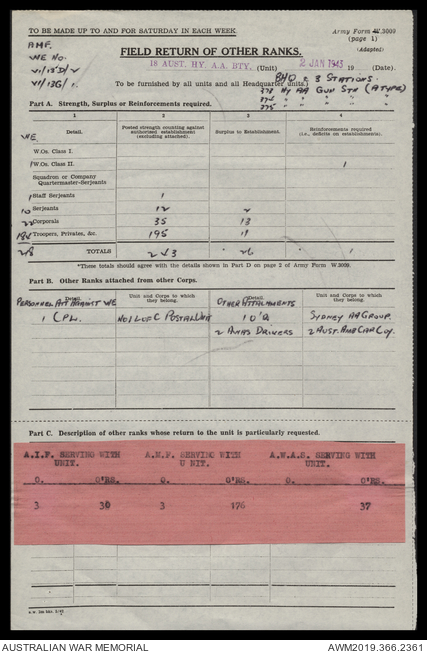 TO BE MADE UP TO AND FOR SATURDAY IN EACH WEEK.
Army Form W.3009
(page 1)
(Adapted)
AMF.
WE No.
FIELD RETURN OF OTHER RANKS.
18 AUST. HY. A.A. BTY. (Unit) 2 JAN 1943 19 (Date).
BHQ & 3 STATIONS.
To be furnished by all units and all Headquarter units.)
HY AA GUN STN (A TYPE)
375 " " " "
Part A. Strength, Surplus or Reinforcements required.
1 2 3 4
WE Detail. Posted strength counting against authorised establishment (excluding attached). Surplus to Establishment. Reinforcements required (i.e., deficits on establishments).
W.Os. Class I.
1 W.Os. Class II. 1
Squadron or Company Quartermaster-Serjeants
1 Staff Serjeants 1
10 Serjeants 12 2
22 Corporals 35 13
184 Troopers, Privates, &c. 195 11
218 TOTALS 243 * 26 * 1
*These totals should agree with the details shown in Part D on page 2 of Army Form W.3009.
Part B. Other Ranks attached from other Corps.
Detail. Unit and Corps to which they belong. Detail. Unit and Corps to which they belong.
PERSONNEL ATT AGAINST WE OTHER ATTACHMENTS
1 CPL. NO 1 L OF C POSTAL UNIT 1 O'R SYDNEY AA GROUP.
2 AWAS DRIVERS 2 AUST. AMB CAR COY.
Part C. Description of other ranks whose return to the unit is particularly requested.
A.I.F. SERVING WITH UNIT. A.M.F. SERVING WITH UNIT. A.W.A.S. SERVING WITH UNIT.
O. O'RS. O. O'RS. O. O'RS.
3 30 3 176 37
AUSTRALIAN WAR MEMORIAL AWM2019.366.2361